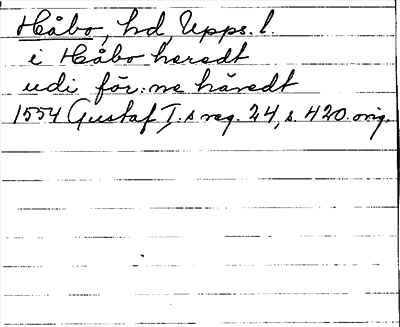 Håbo, hd, Upps. l.
i Håbo heredt
udi för:ne häredt
1554 Gustaf I.s reg. 24, s. 420. orig.